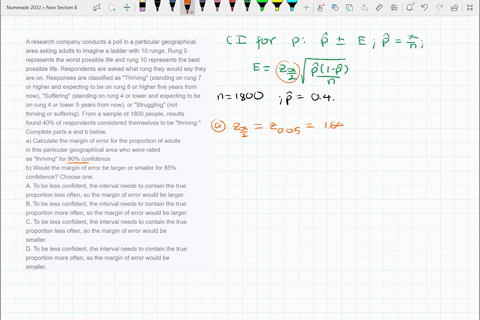 Numerade 2022 > New Section 6
A research company conducts a poll in a particular geographical
area asking adults to imagine a ladder with 10 rungs. Rung 0
represents the worst possible life and rung 10 represents the best
possible life. Respondents are asked what rung they would say they
are on. Responses are classified as "Thriving" (standing on rung 7
or higher and expecting to be on rung 8 or higher five years from
now), "Suffering" (standing on rung 4 or lower and expecting to be
on rung 4 or lower 5 years from now), or "Struggling" (not
thriving or suffering). From a sample of 1800 people, results
found 40% of respondents considered themselves to be "thriving."
Complete parts a and b below.
a) Calculate the margin of error for the proportion of adults
in this particular geographical area who were rated
as "thriving" for 90% confidence
b) Would the margin of error be larger or smaller for 85%
confidence? Choose one.
A. To be less confident, the interval needs to contain the true
proportion less often, so the margin of error would be larger.
B. To be less confident, the interval needs to contain the true
proportion more often, so the margin of error would be larger.
C. To be less confident, the interval needs to contain the true
proportion less often, so the margin of error would be
smaller.
D. To be less confident, the interval needs to contain the true
proportion more often, so the margin of error would be
smaller.
CI for p: p̂ ± E ; p̂ = x/n ;
E = z_{α/2} √(p̂(1-p̂)/n)
n=1800 ; p̂ = 0.4.
(a) z_{α/2} = z_{0.05} = 1.64